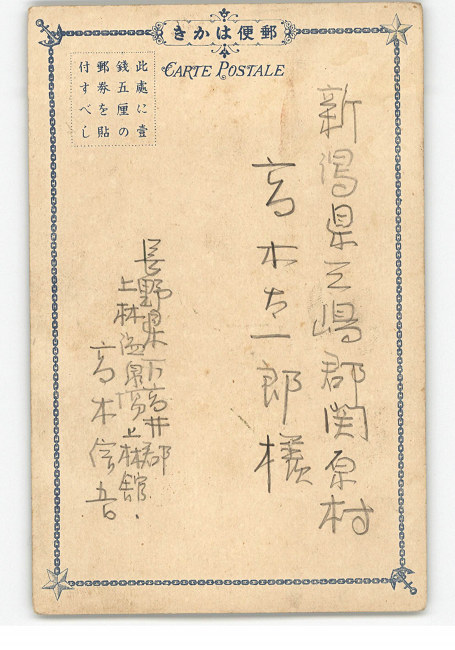 郵便はかき
CARTE POSTALE
此處に壹
錢五厘の
郵券を貼
付すべし
新潟県三嶋郡関原村
高木太一郎様
長野県下高井郡
上林温泉場上林館、
高木信吾